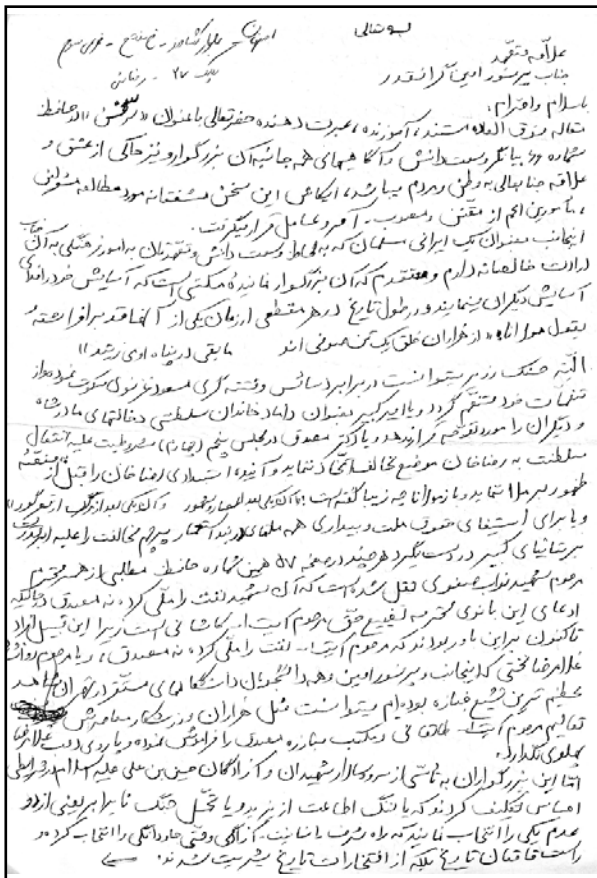 بسمه تعالی
اصفهان - بلوار کشاورز - خ مفتح - فرعی سوم
پلاک ۲۷ - رضائی
علاقه متعهد
جناب پرفسور امین گرانقدر
با سلام و احترام،
مقاله فوق العاده مستند، آموزنده، عبرت دهنده حضرتعالی با عنوان «  » در حافظ
شماره ۶۶ بیانگر وسعت دانش و آگاهیهای همه جانبه آن بزرگوار و نیز حاکی از عشق و
علاقه جنابعالی به وطن و مردم میباشد، ایکاش این سخن مشفقانه مورد مطالعه مسئولین
، مأمورین اعم از مقنن و آمر و عامل قرار میگرفت.
اینجانب بعنوان یک ایرانی مسلمان که به لحاظ وسعت دانش و تعهدتان به امور فرهنگی به آن جناب
ارادت خالصانه دارم و معتقدم که آن بزرگوار نماینده مکتبی است که آسایش خود را فدای
آسایش دیگران مینمایند و در طول تاریخ در هر مقطعی از زمان یکی از آنها قد برافراشته
بقول مولانا: «از هزاران خلق یک تن صوفی اند     مابقی در پناه او می زیند»
البته حسنک وزیر میتوانست در برابر دسائس و فتنه گری مسعود غزنوی سکوت نموده و از
خود متنعم گردد و یا امیرکبیر بعنوان داماد خاندان سلطنتی دخالتهای مادر شاه
و دیگران را مورد توجه قرار ندهد و یا دکتر مصدق در مجلس پنجم (چهارم) مشروطیت علیه انتقال
سلطنت به رضاخان موضع مخالف اتخاذ ننماید و آینده استبدادی رضاخان را قبل از
ظهور برملا ننماید و باز مولانا چه زیبا گفته است:
و یا برای استیفای حقوق ملت و بیداری همه ملتهای دربند استعمار پرچم مخالفت را علیه
بریتانیای کبیر در دست نگیرد هر چند در صفحه ۵۷ همین شماره حافظ مطالبی از همسر محترم
مرحوم شهید نواب صفوی نقل شده است که آن شهید نفت را ملی کرد، نه مصدق در حالیکه
ادعای این بانوی محترمه تضییع حق مرحوم آیت‌ا... کاشانی است زیرا این قبیل افراد
تاکنون بر این باور بودند که مرحوم آیت‌ا... نفت را ملی کرده نه مصدق، و یا مرحوم
غلامرضا تختی که اینجانب و پرفسور امین و همه دانشجویان دانشگاههای مستقر در تهران شاهد
عظیم ترین تشییع جنازه بوده‌ایم میتوانست مثل هزاران ورزشکار
تعالیم مرحوم آیت‌ا... طالقانی و مکتب مبارزه مصدق را فراموش نموده و یا روی دست غلامرضا
پهلوی نگذارد.
امّا این بزرگواران به تأسّی از سرور و سالار شهیدان و آزادگان حسین بن علی علیه السلام در شرایطی
احساس تکلیف کردند که یا ننگ اطاعت از یزید و یا تحمّل جنگ نابرابر یعنی از دو
عدم یکی را انتخاب نمایند که راه شرف یا خیانت. آزادگی وقتی جاودانگی را انتخاب کرد و
راست قامتان تاریخ بلکه از افتخارات تاریخ بشریت شدند.